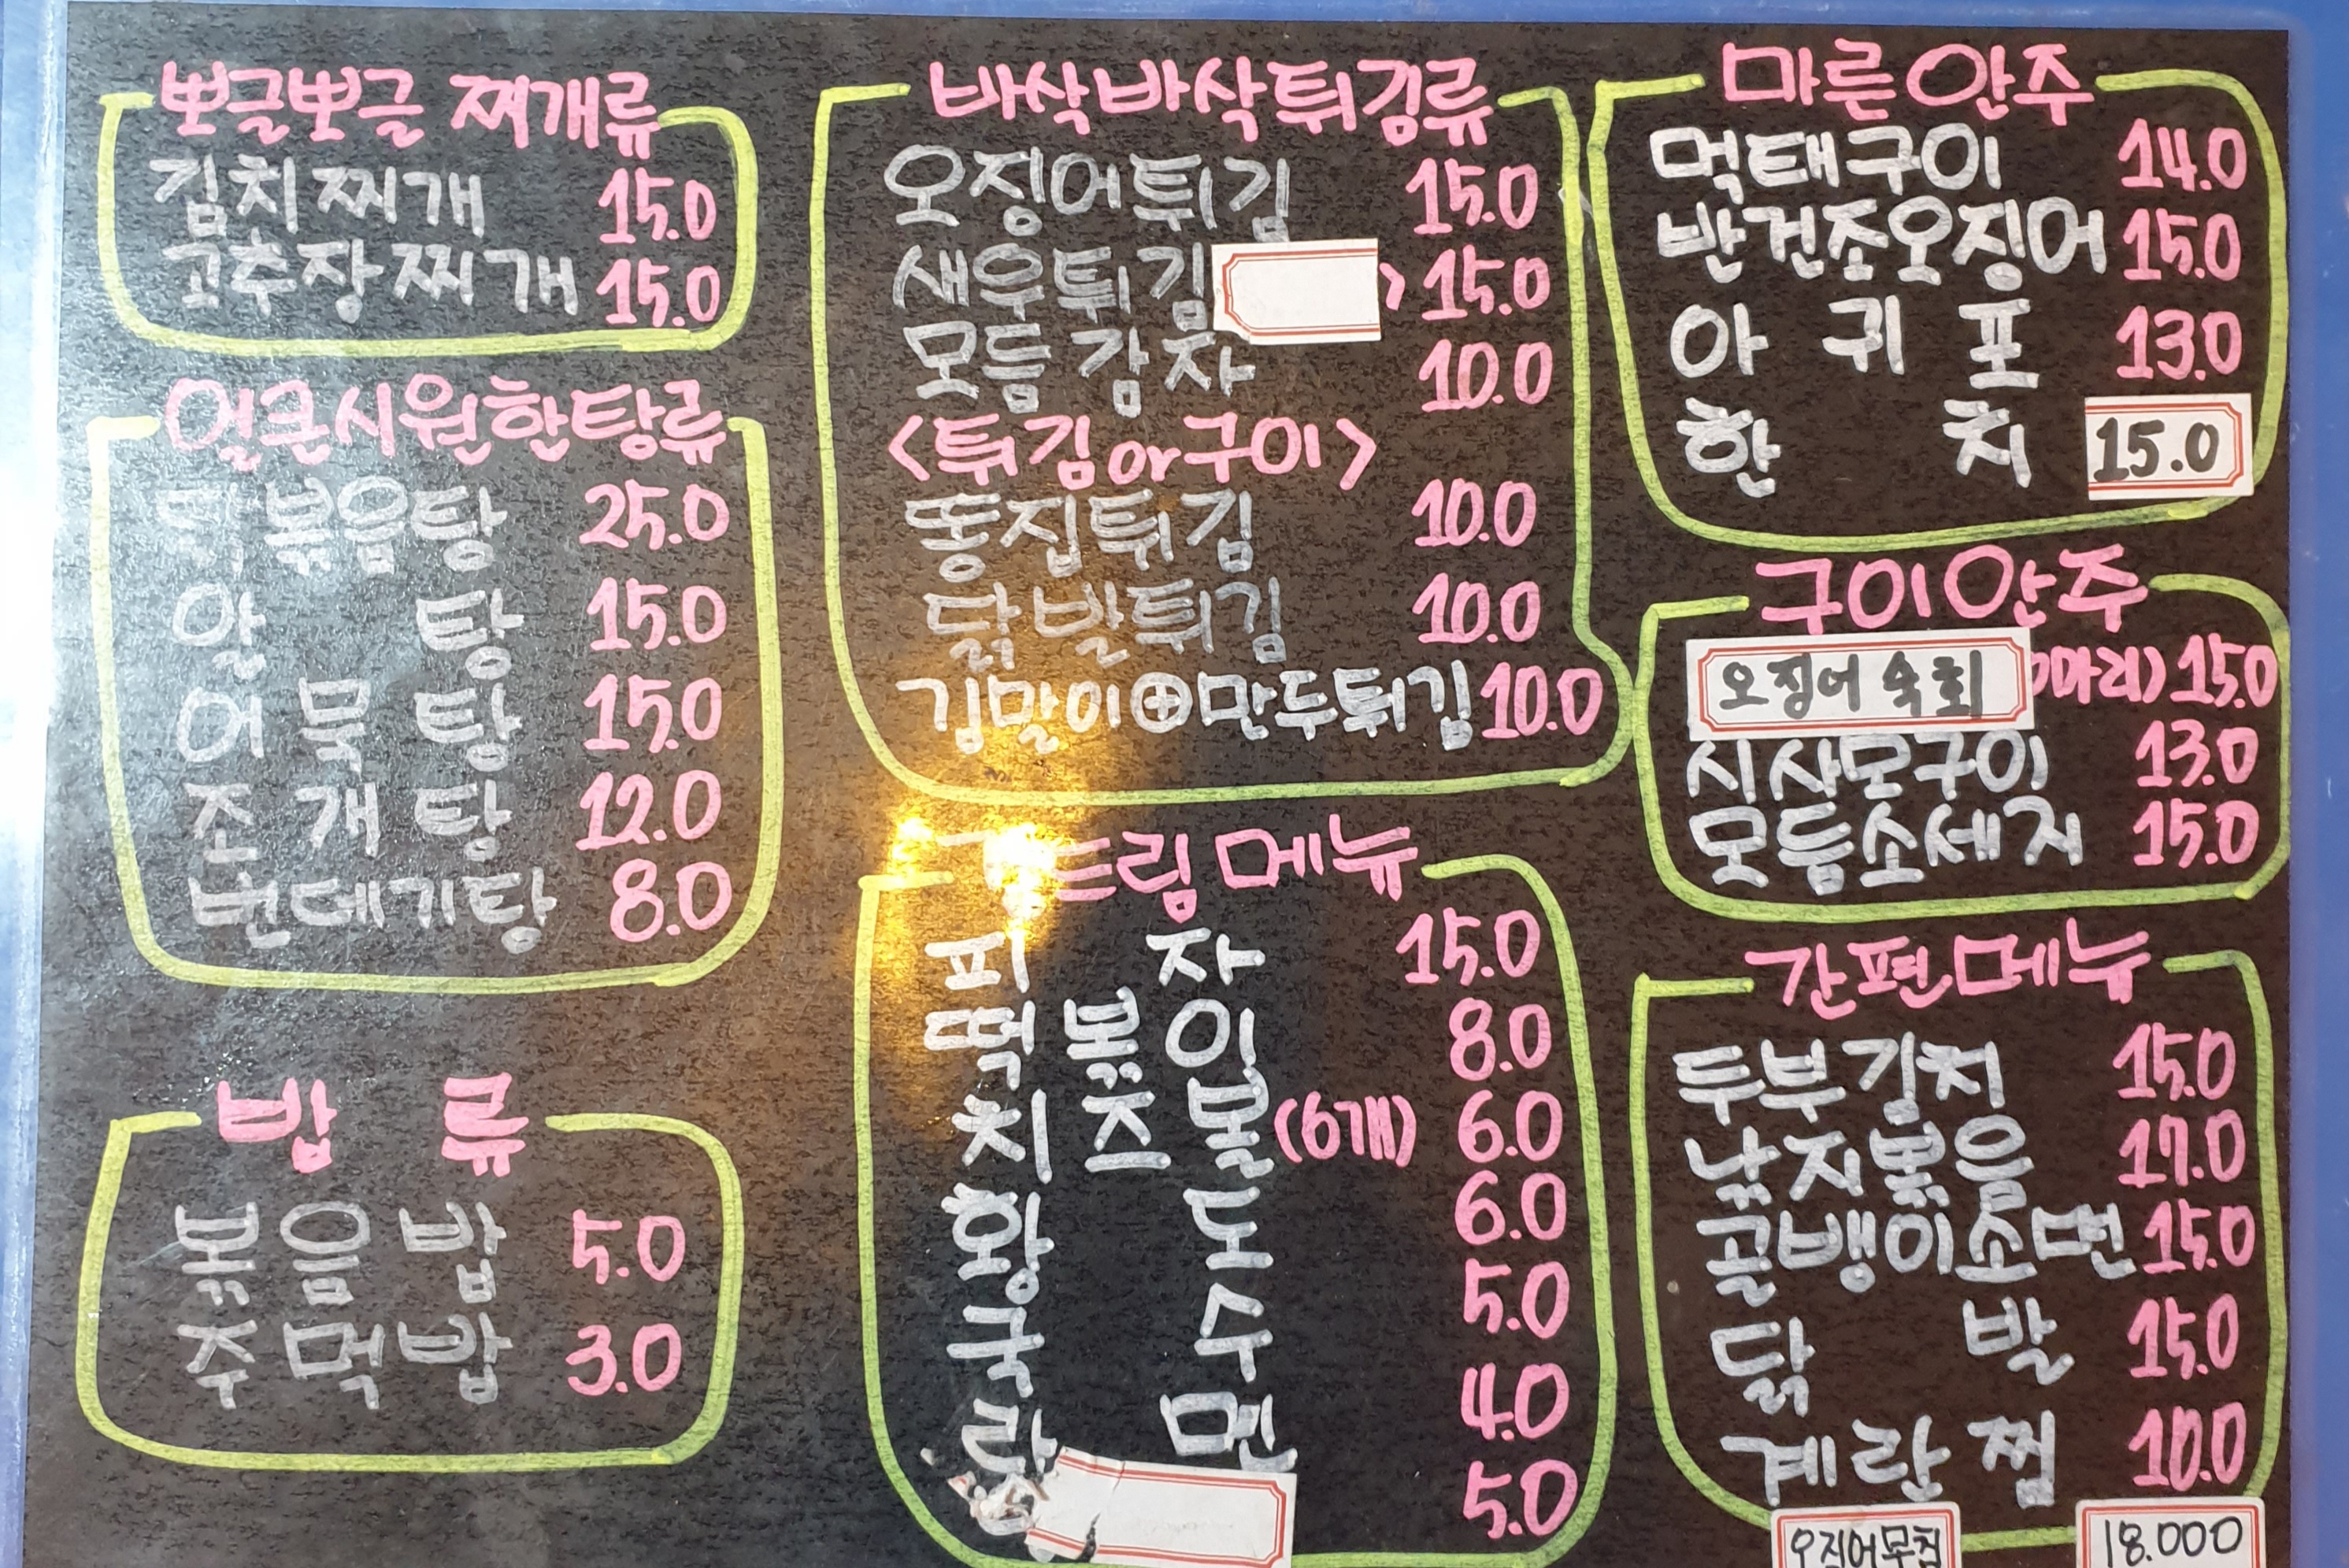 뽀글뽀글 찌개류
김치찌개 15.0
고추장찌개 15.0
얼큰시원한탕류
닭볶음탕 25.0
알탕 15.0
어묵탕 15.0
조개탕 12.0
번데기탕 8.0
밥류
볶음밥 5.0
주먹밥 3.0
바삭바삭튀김류
오징어튀김 15.0
새우튀김 ) 15.0
모듬감자 10.0
<튀김or구이>
똥집튀김 10.0
닭발튀김 10.0
김말이⊕만두튀김 10.0
드림메뉴
피자 15.0
떡볶이 8.0
치즈볼(6개) 6.0
황도 6.0
국수 5.0
라면 4.0
5.0
마른안주
먹태구이 14.0
반건조오징어 15.0
아귀포 13.0
한치 15.0
구이안주
오징어 숙회 마리) 15.0
시사모구이 13.0
모듬소세지 15.0
간편메뉴
두부김치 15.0
낙지볶음 17.0
골뱅이소면 15.0
닭발 15.0
계란찜 10.0
오징어무침 18.000